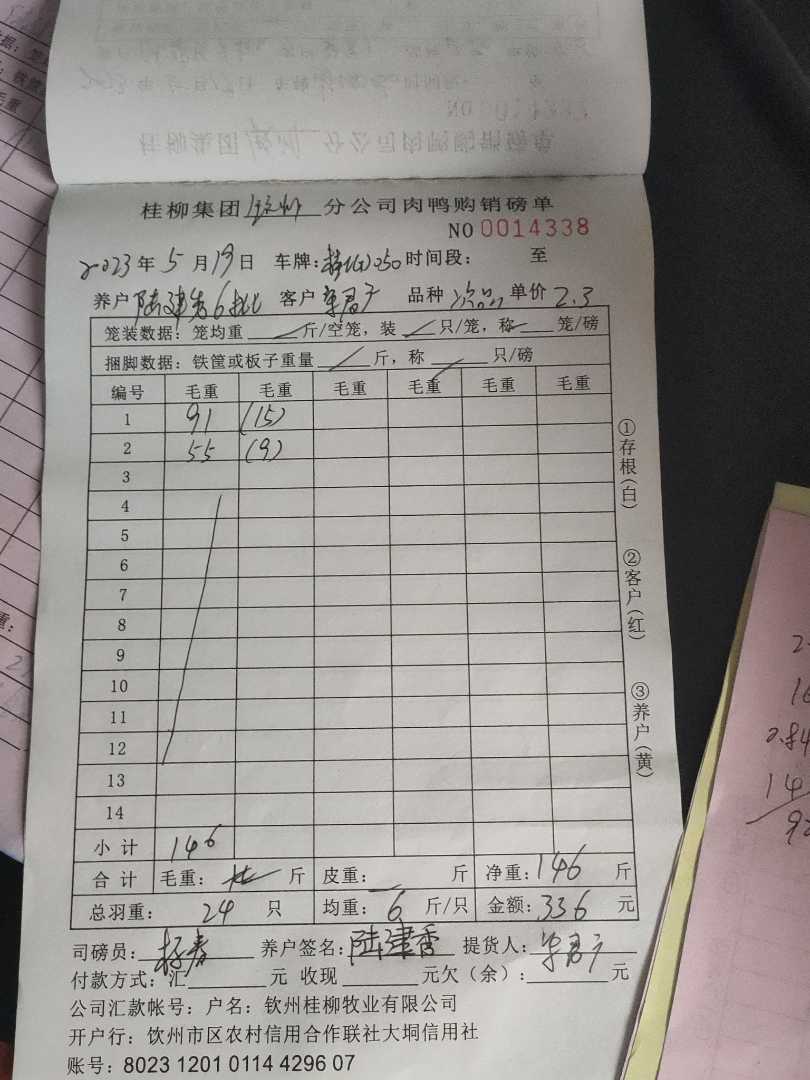 桂柳集团钦州分公司肉鸭购销磅单
NO 0014338
2023年5月19日 车牌: 050 时间段: 至
养户 陆建香6批 客户 单价 2.3 品种 次品
笼装数据: 笼均重 斤/空笼, 装 只/笼, 称 笼/磅
捆脚数据: 铁筐或板子重量 斤, 称 只/磅
编号 毛重 毛重 毛重 毛重 毛重 毛重
1 91 (15)
2 55 (9)
3
4
5
6
7
8
9
10
11
12
13
14
小计 146
合计 毛重: 斤 皮重: 斤 净重: 146 斤
总羽重: 24 只 均重: 6 斤/只 金额: 336 元
司磅员: 杨春 养户签名: 陆建香 提货人:
付款方式: 汇 元 收现 元欠(余): 元
公司汇款帐号: 户名: 钦州桂柳牧业有限公司
开户行: 饮州市区农村信用合作联社大垌信用社
账号: 8023 1201 0114 4296 07
①存根(白)
②客户(红)
③养户(黄)